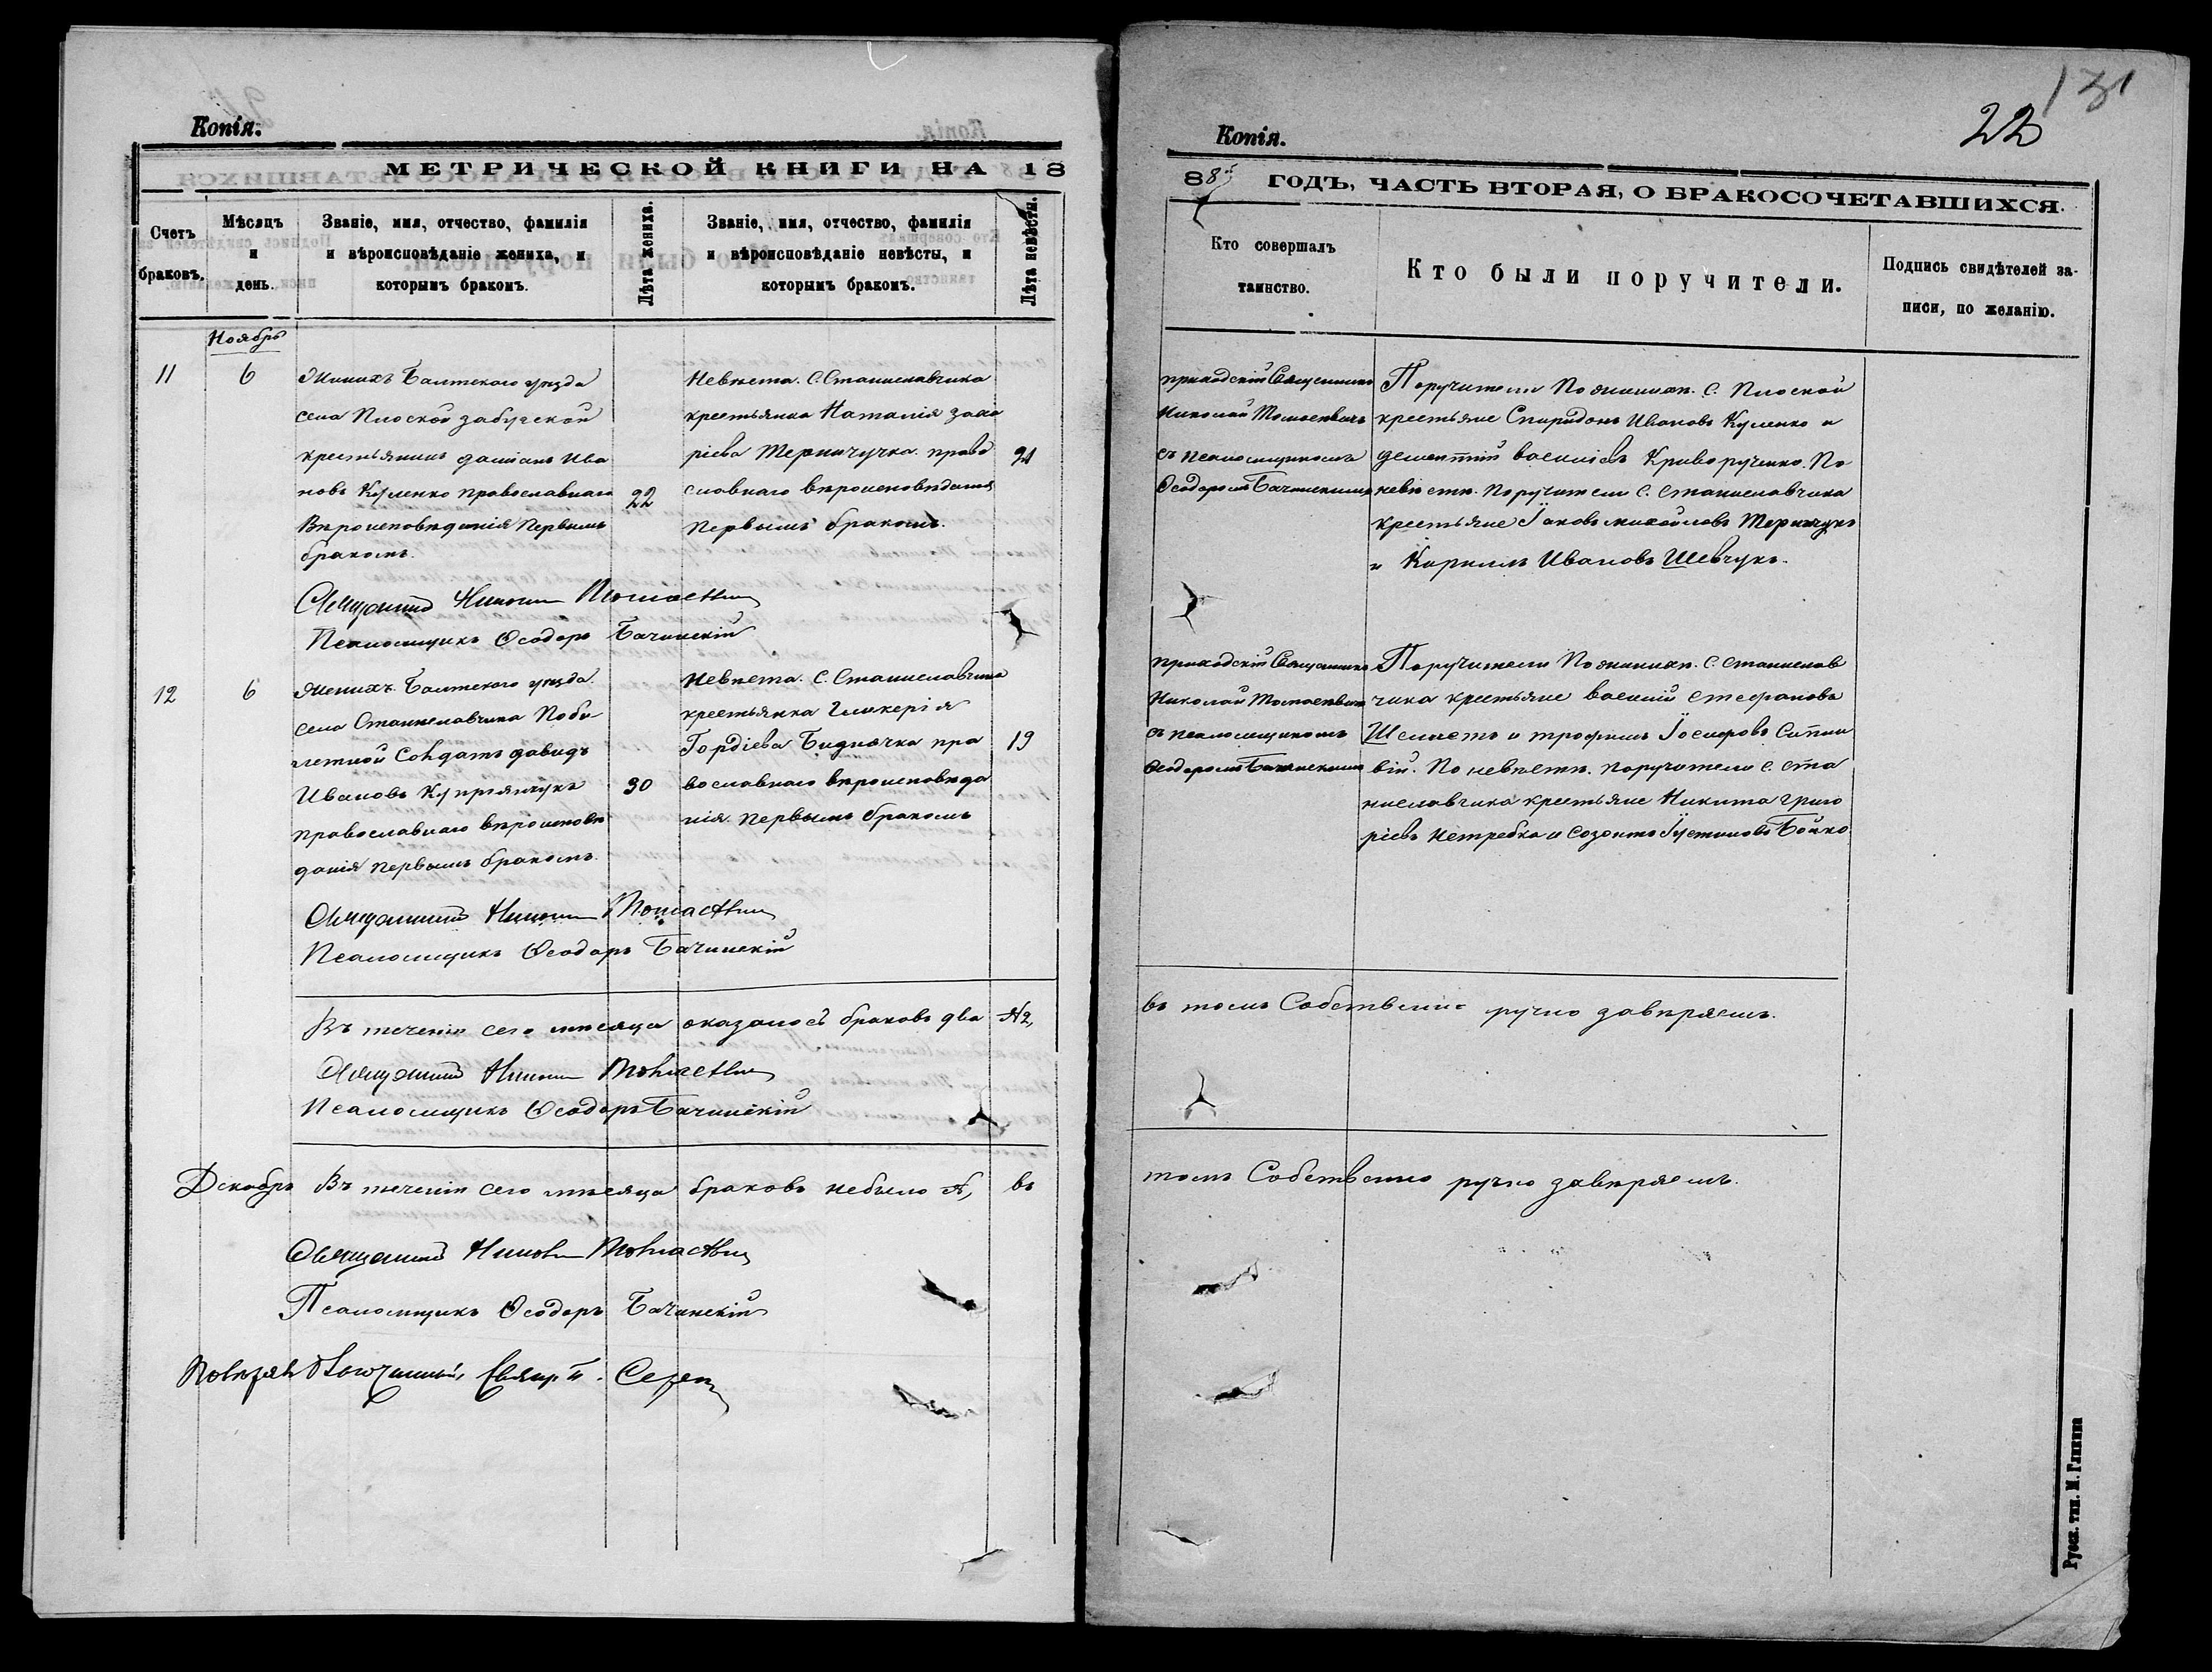 Копія.
МЕТРИЧЕСКОЙ КНИГИ НА 18
Счетъ браковъ.
Мѣсяцъ и день.
Званіе, имя, отчество, фамилія и вѣроисповѣданіе жениха, и которымъ бракомъ.
Лѣта жениха.
Званіе, имя, отчество, фамилія и вѣроисповѣданіе невѣсты, и которымъ бракомъ.
Лѣта невѣсты.
Ноябрь
11
6
Женихъ Балтскаго уѣзда
села Плоской забугской
крестьянинъ даміанъ Ива
новъ Куленко православнаго
Вѣроисповѣданія Первымъ
бракомъ.
22
Невѣста. С. Станиславчика
крестьянка Наталія Заха
ріева Терничучка. право
славнаго вѣроисповѣданія
первымъ бракомъ.
21
Священникъ Николай
Псаломщикъ Ѳеодоръ Бачинскій
12
6
Женихъ. Балтскаго уѣзда.
села Станиславчика По би
летной Солдатъ давидъ
Ивановъ Купріянчукъ
православнаго вѣроисповѣ
данія первымъ бракомъ.
30
Невѣста. С. Станиславчика
крестьянка Гликерія
Гордіева Бидначка пра
вославнаго вѣроисповѣда
нія. первымъ бракомъ
19
Священникъ Николай
Псаломщикъ Ѳеодоръ Бачинскій
Въ теченіи сего мѣсяца оказалось браковъ два №2,
Священникъ Николай
Псаломщикъ Ѳеодоръ Бачинскій
Декабрь Въ теченіи сего мѣсяца браковъ небыло №, въ
Священникъ Николай
Псаломщикъ Ѳеодоръ Бачинскій
131
22
Копія.
885 ГОДЪ, ЧАСТЬ ВТОРАЯ, О БРАКОСОЧЕТАВШИХСЯ.
Кто совершалъ таинство.
Кто были поручители.
Подпись свидѣтелей записи, по желанію.
приходскій Священникъ
Николай
съ псаломщикомъ
Ѳеодоромъ Бачинскимъ
Поручители По женихѣ. С. Плоской
крестьяне Спиридонъ Ивановъ Куленко и
дементій василіевъ Криворученко. По
невѣстѣ. поручители с. станиславчика
крестьяне Іаковъ михайловъ Терничукъ
и Кириллъ Ивановъ Шевчукъ.
приходскій Священникъ
Николай
съ псаломщикомъ
Ѳеодоромъ Бачинскимъ
Поручители По женихѣ. с. станислав
чика крестьяне василій стефановъ
и трофимъ Іосифовъ
По невѣстѣ. поручители с. ста
ниславчика крестьяне Никита григо
ріевъ нетребка и созонтъ Іустиновъ Бойко.
въ томъ Собственно ручно завѣряемъ.
томъ Собственно ручно завѣряемъ.
Русск. тип. М. Глинки